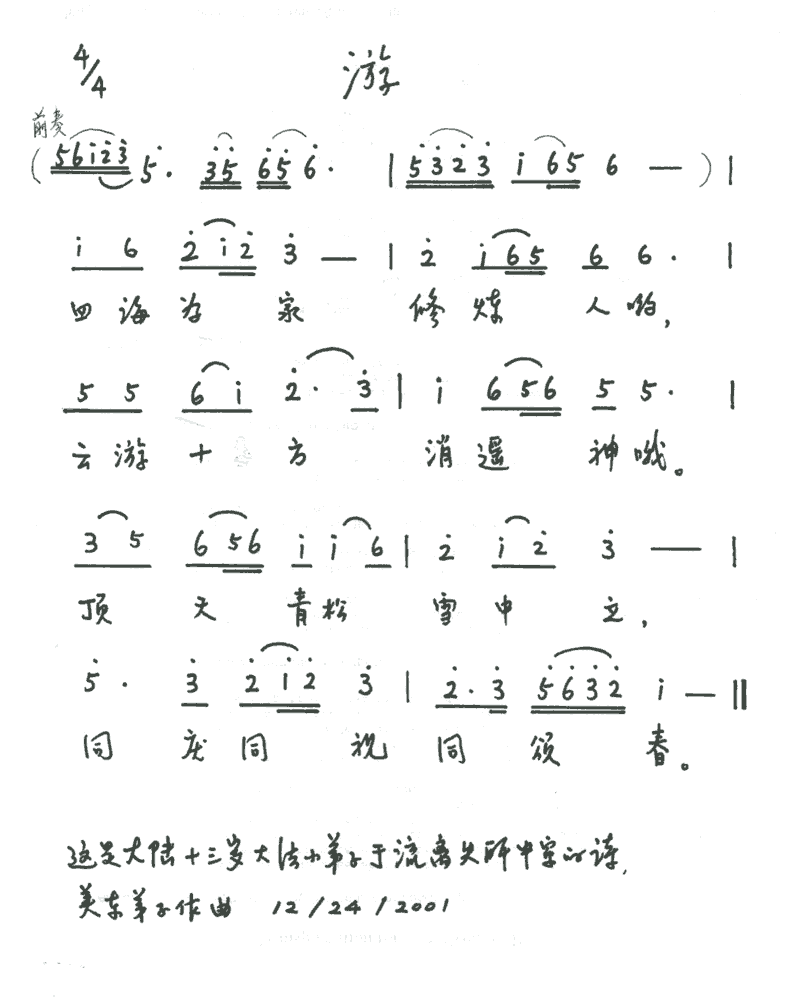 4/4 游
前奏
(56i̇2̇3̇ 5̇· 3̇5̇ 6̇5̇ 6̇· | 5̇3̇2̇3̇ i̇65 6 — ) |
i̇ 6 2̇i̇2̇ 3̇ — | 2̇ i̇65 6 6· |
四海为家 修炼人哟,
5 5 6 i̇ 2̇· 3̇ | i̇ 656 5 5· |
云游十方 消遥神哦。
3 5 656 i̇ i̇ 6 | 2̇ i̇ 2̇ 3̇ — |
顶天青松 雪中立,
5̇· 3̇ 2̇i̇2̇ 3̇ | 2̇· 3̇ 5̇6̇3̇2̇ i̇ — ||
同庆同祝同颂春。
这是大陆十三岁大法小弟子于流离失所中写的诗,
美东弟子作曲 12/24/2001